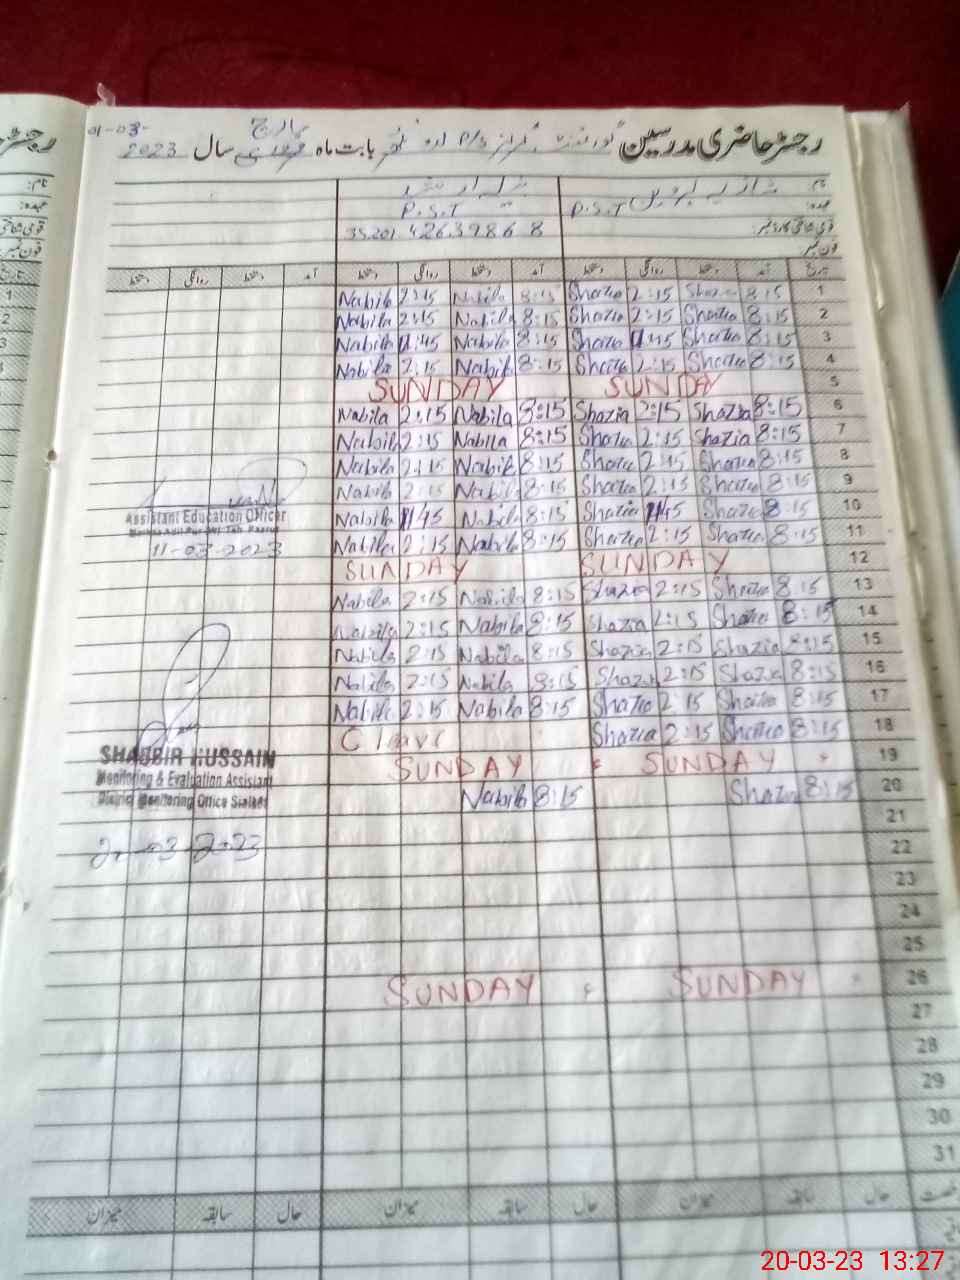 رجسٹر حاضری مدرسین گورنمنٹ گرلز P/S بابت ماہ مارچ سال 2023
01-03-
نام:
عہدہ: P.S.T P.S.T
قومی شناختی کارڈ نمبر: 35201 4263986 8
فون نمبر:
تاریخ آمد دستخط روانگی دستخط آمد دستخط روانگی دستخط آمد دستخط روانگی دستخط
Nabila 2:15 Nabila 8:15 Shazia 2:15 Shazia 8:15 1
Nabila 2:15 Nabila 8:15 Shazia 2:15 Shazia 8:15 2
Nabila 11:45 Nabila 8:15 Shazia 11:45 Shazia 8:15 3
Nabila 2:15 Nabila 8:15 Shazia 2:15 Shazia 8:15 4
SUNDAY SUNDAY 5
Nabila 2:15 Nabila 8:15 Shazia 2:15 Shazia 8:15 6
Nabila 2:15 Nabila 8:15 Shazia 2:15 Shazia 8:15 7
Nabila 2:15 Nabila 8:15 Shazia 2:15 Shazia 8:15 8
Nabila 2:15 Nabila 8:15 Shazia 2:15 Shazia 8:15 9
Nabila 11:45 Nabila 8:15 Shazia 11:45 Shazia 8:15 10
Nabila 2:15 Nabila 8:15 Shazia 2:15 Shazia 8:15 11
SUNDAY SUNDAY 12
Nabila 2:15 Nabila 8:15 Shazia 2:15 Shazia 8:15 13
Nabila 2:15 Nabila 8:15 Shazia 2:15 Shazia 8:15 14
Nabila 2:15 Nabila 8:15 Shazia 2:15 Shazia 8:15 15
Nabila 2:15 Nabila 8:15 Shazia 2:15 Shazia 8:15 16
Nabila 2:15 Nabila 8:15 Shazia 2:15 Shazia 8:15 17
C leave Shazia 2:15 Shazia 8:15 18
SUNDAY SUNDAY 19
Nabila 8:15 Shazia 8:15 20
21
22
23
24
25
SUNDAY SUNDAY 26
27
28
29
30
31
حال سابقہ میزان حال سابقہ میزان حال سابقہ میزان
Assistant Education Officer
11-03-2023
SHABBIR HUSSAIN
Monitoring & Evaluation Assistant
District Monitoring Office Sialkot
03-2023
20-03-23 13:27